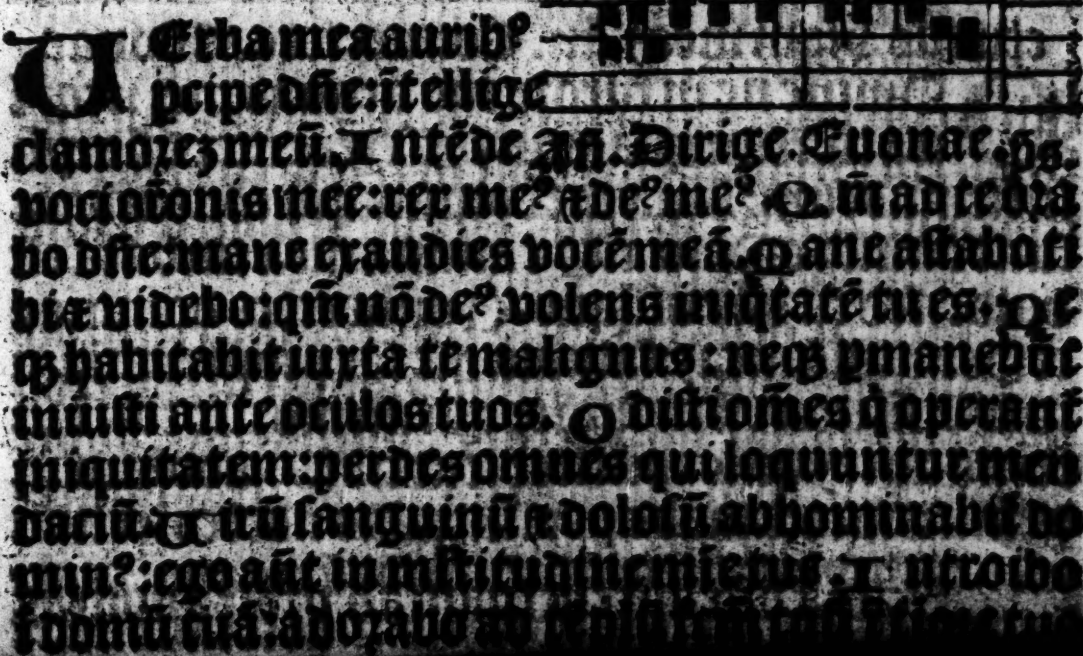 VErba mea aurib⁹
ꝑcipe dn̄e: ītellige
clamorēꝫ meū. Intēde Añ. Dirige. Euouae. p̄s.
voci or̄onis mee: rex me⁹ ⁊ de⁹ me⁹. Qm̄ ad te ora
bo dn̄e: mane exaudies vocē meā. Mane astabo ti
bi ⁊ videbo: qm̄ nō de⁹ volens iniq̇tatē tu es. Ne
qꝫ habitabit iuxta te malignus: neqꝫ ꝑmanebūt
iniusti ante oculos tuos. Odisti om̄es q̇ operant᷑
iniquitatem: perdes omnes qui loquuntur men
daciū. Uirū sanguinū ⁊ dolosū abhominabit᷑ do
min⁹: ego aūt in mltitudine mīe tue. Introibo
ī domū tuā: adorabo ad